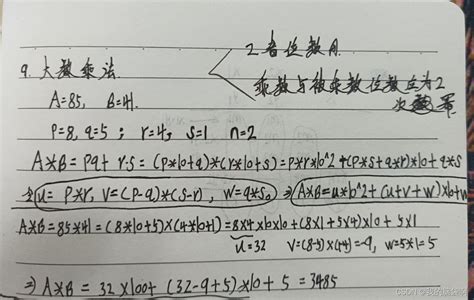 2者位数同.
9.大数乘法
乘数与被乘数位数应为2
次幂
A=85, B=41.
P=8, q=5 ; r=4, s=1 n=2
A*B = Pq * r.s = (P*10+q)*(r*10+s)=P*r*10^2+(P*s+q*r)*10+q*s
u= P*r, V=(P-q)*(s-r), w=q*s。 => A*B=u*b^2+(u+v+w)*b+w
A*B = 85*41 = (8*10+5)×(4*10+1)=8×4×10×10+(8×1+5×4)×10+5×1
u=32 V=(8-5)×(1-4)=-9, w=5*1=5
=> A*B = 32×100+(32-9+5)×10+5=3485